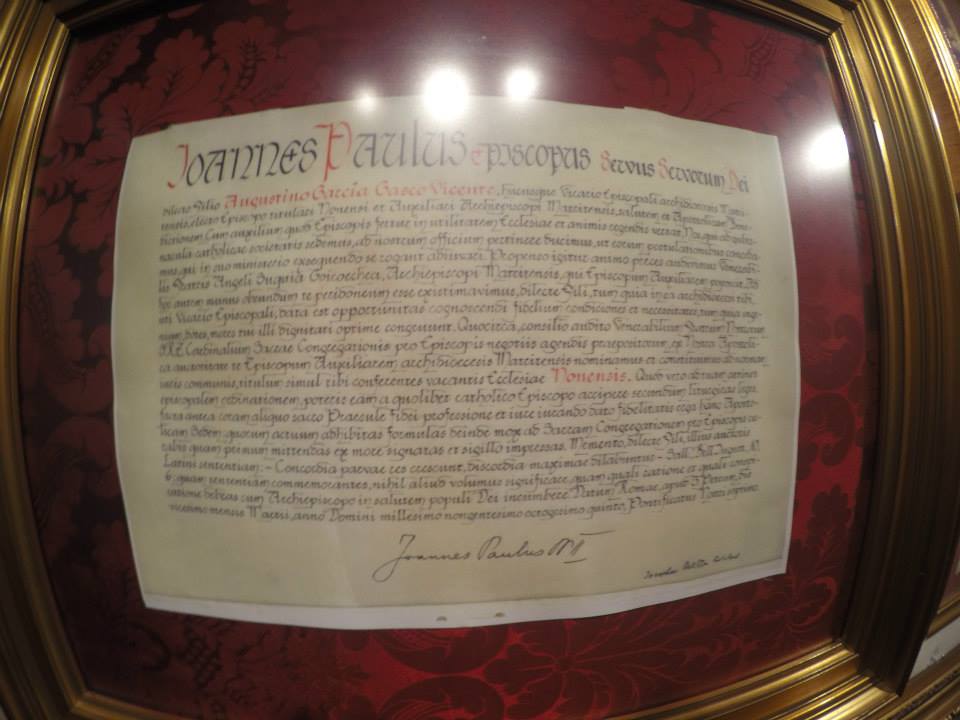 Joannes Paulus episcopus Servus Servorum Dei
dilecto Filio Augustino García Gasco Vicente, hucusque Vicario Episcopali archidioecesis Matri-
tensis, electo Episcopo titulari Nonensi et Auxiliari Archiepiscopi Matritensis, salutem et Apostolicam Bene-
dictionem. Cum auxilium quod Episcopis fertur in utilitatem Ecclesiae et animis regendis vertat, Nos, qui ad guber-
nacula catholicae societatis sedemus, ad nostrum officium pertinere ducimus, ut eorum postulationibus
mus, qui in suo ministerio exsequendo se rogant adiuvari. Propenso igitur animo preces audientes Venerabi-
lis Fratris Angeli Suquía Goicoechea, Archiepiscopi Matritensis, qui Episcopum Auxiliarem poposcit, Ad
hoc autem munus obeundum te peridoneum esse existimavimus, dilecte Fili, tum quia in ea archidioecesi tibi,
uti Vicario Episcopali, data est opportunitas cognoscendi fidelium condiciones et necessitates, tum quia inge-
nium, dotes, mores tui illi dignitati optime congruunt. Quocirca, consilio audito Venerabilium Fratrum Nostrorum
S.R.E. Cardinalium Sacrae Congregationis pro Episcopis negotiis agendis praepositorum, ex Nostra Apostoli-
ca auctoritate te Episcopum Auxiliarem archidioecesis Matritensis nominamus et constituimus ad normam
iuris communis, titulum simul tibi conferentes vacantis Ecclesiae Nonensis. Quod vero ad tuam attinet
episcopalem ordinationem, poteris eam a quolibet catholico Episcopo accipere secundum liturgicas leges,
facta antea coram aliquo sacro Praesule fidei professione et iure iurando dato fidelitatis erga hanc Aposto-
licam Sedem; quorum actuum adhibitas formulas deinde mox ad Sacram Congregationem pro Episcopis ce-
rabis quam primum mittendas ex more signatas et sigillo impressas. Memento, dilecte Fili, illius auctoris
Latini sententiam: - Concordia parvae res crescunt, discordia maximae dilabuntur - Sall. Bell. Jugurt. X,
6; quam sententiam commemorantes, nihil aliud volumus significare, quam quali ratione et quali
ratione debeas cum Archiepiscopo in salutem populi Dei incumbere. Datum Romae, apud S. Petrum, die
vicesimo mensis Martii, anno Domini millesimo nongentesimo octogesimo quinto, Pontificatus Nostri septimo.
Joannes Paulus PP. II